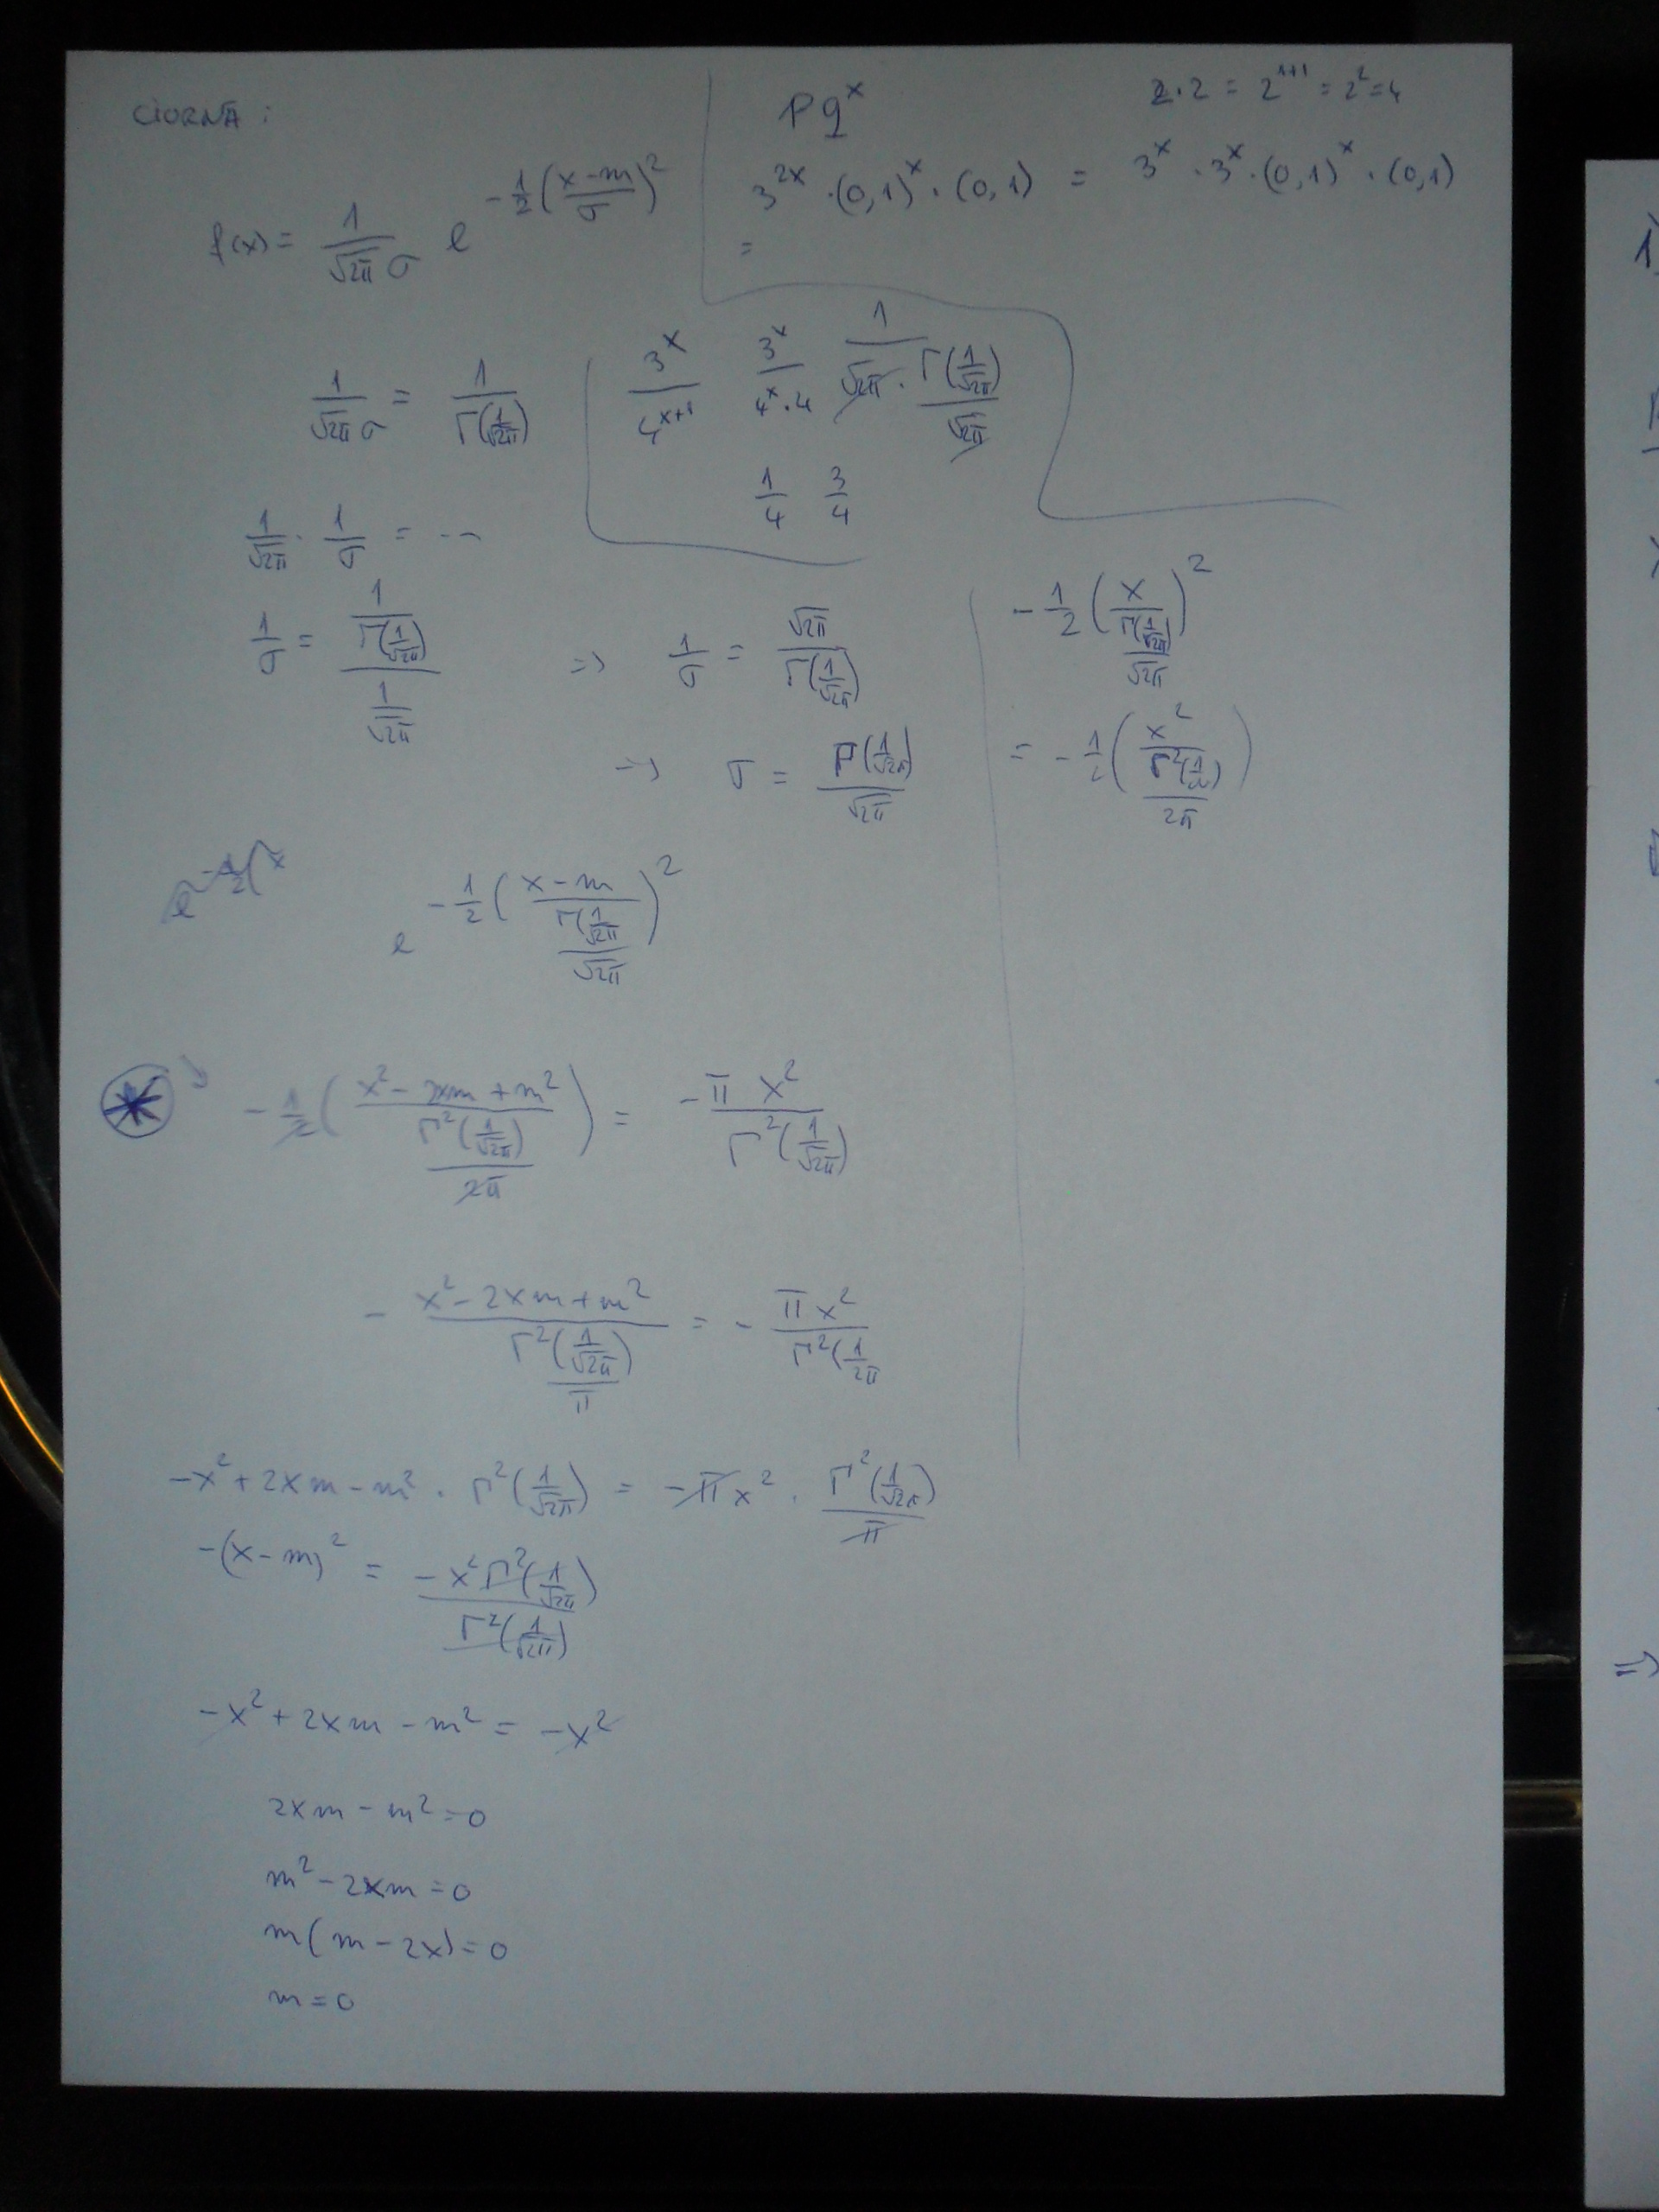 CIORNĂ :
f(x) = 1/(√2π σ) e^(-1/2 ((x-m)/σ)^2)
p q^x
2·2 = 2^(1+1) = 2^2 = 4
3^(2x) · (0,1)^x · (0,1) = 3^x · 3^x · (0,1)^x · (0,1)
=
1/(√2π σ) = 1/Γ(1/√2π)
3^x/4^(x+1) 3^x/(4^x · 4) 1/(√2π · Γ(1/√2π)/√2π)
1/4 3/4
1/√2π · 1/σ = --
1/σ = (1/Γ(1/√2π))/(1/√2π) => 1/σ = √2π/Γ(1/√2π)
=> σ = Γ(1/√2π)/√2π
-1/2 (x/(Γ(1/√2π)/√2π))^2
= -1/2 (x^2/(Γ^2(1/√2π)/2π))
e^(-1/2 (x
e^(-1/2 ((x-m)/(Γ(1/√2π)/√2π))^2)
* -1/2 ((x^2 - 2xm + m^2)/(Γ^2(1/√2π)/2π)) = -π x^2/Γ^2(1/√2π)
- (x^2 - 2xm + m^2)/(Γ^2(1/√2π)/π) = - π x^2/Γ^2(1/2π
-x^2 + 2xm - m^2 · Γ^2(1/√2π) = -π x^2 · Γ^2(1/√2π)/π
-(x-m)^2 = -x^2 Γ^2(1/√2π)/Γ^2(1/√2π)
-x^2 + 2xm - m^2 = -x^2
2xm - m^2 = 0
m^2 - 2xm = 0
m(m - 2x) = 0
m = 0
1)
=>